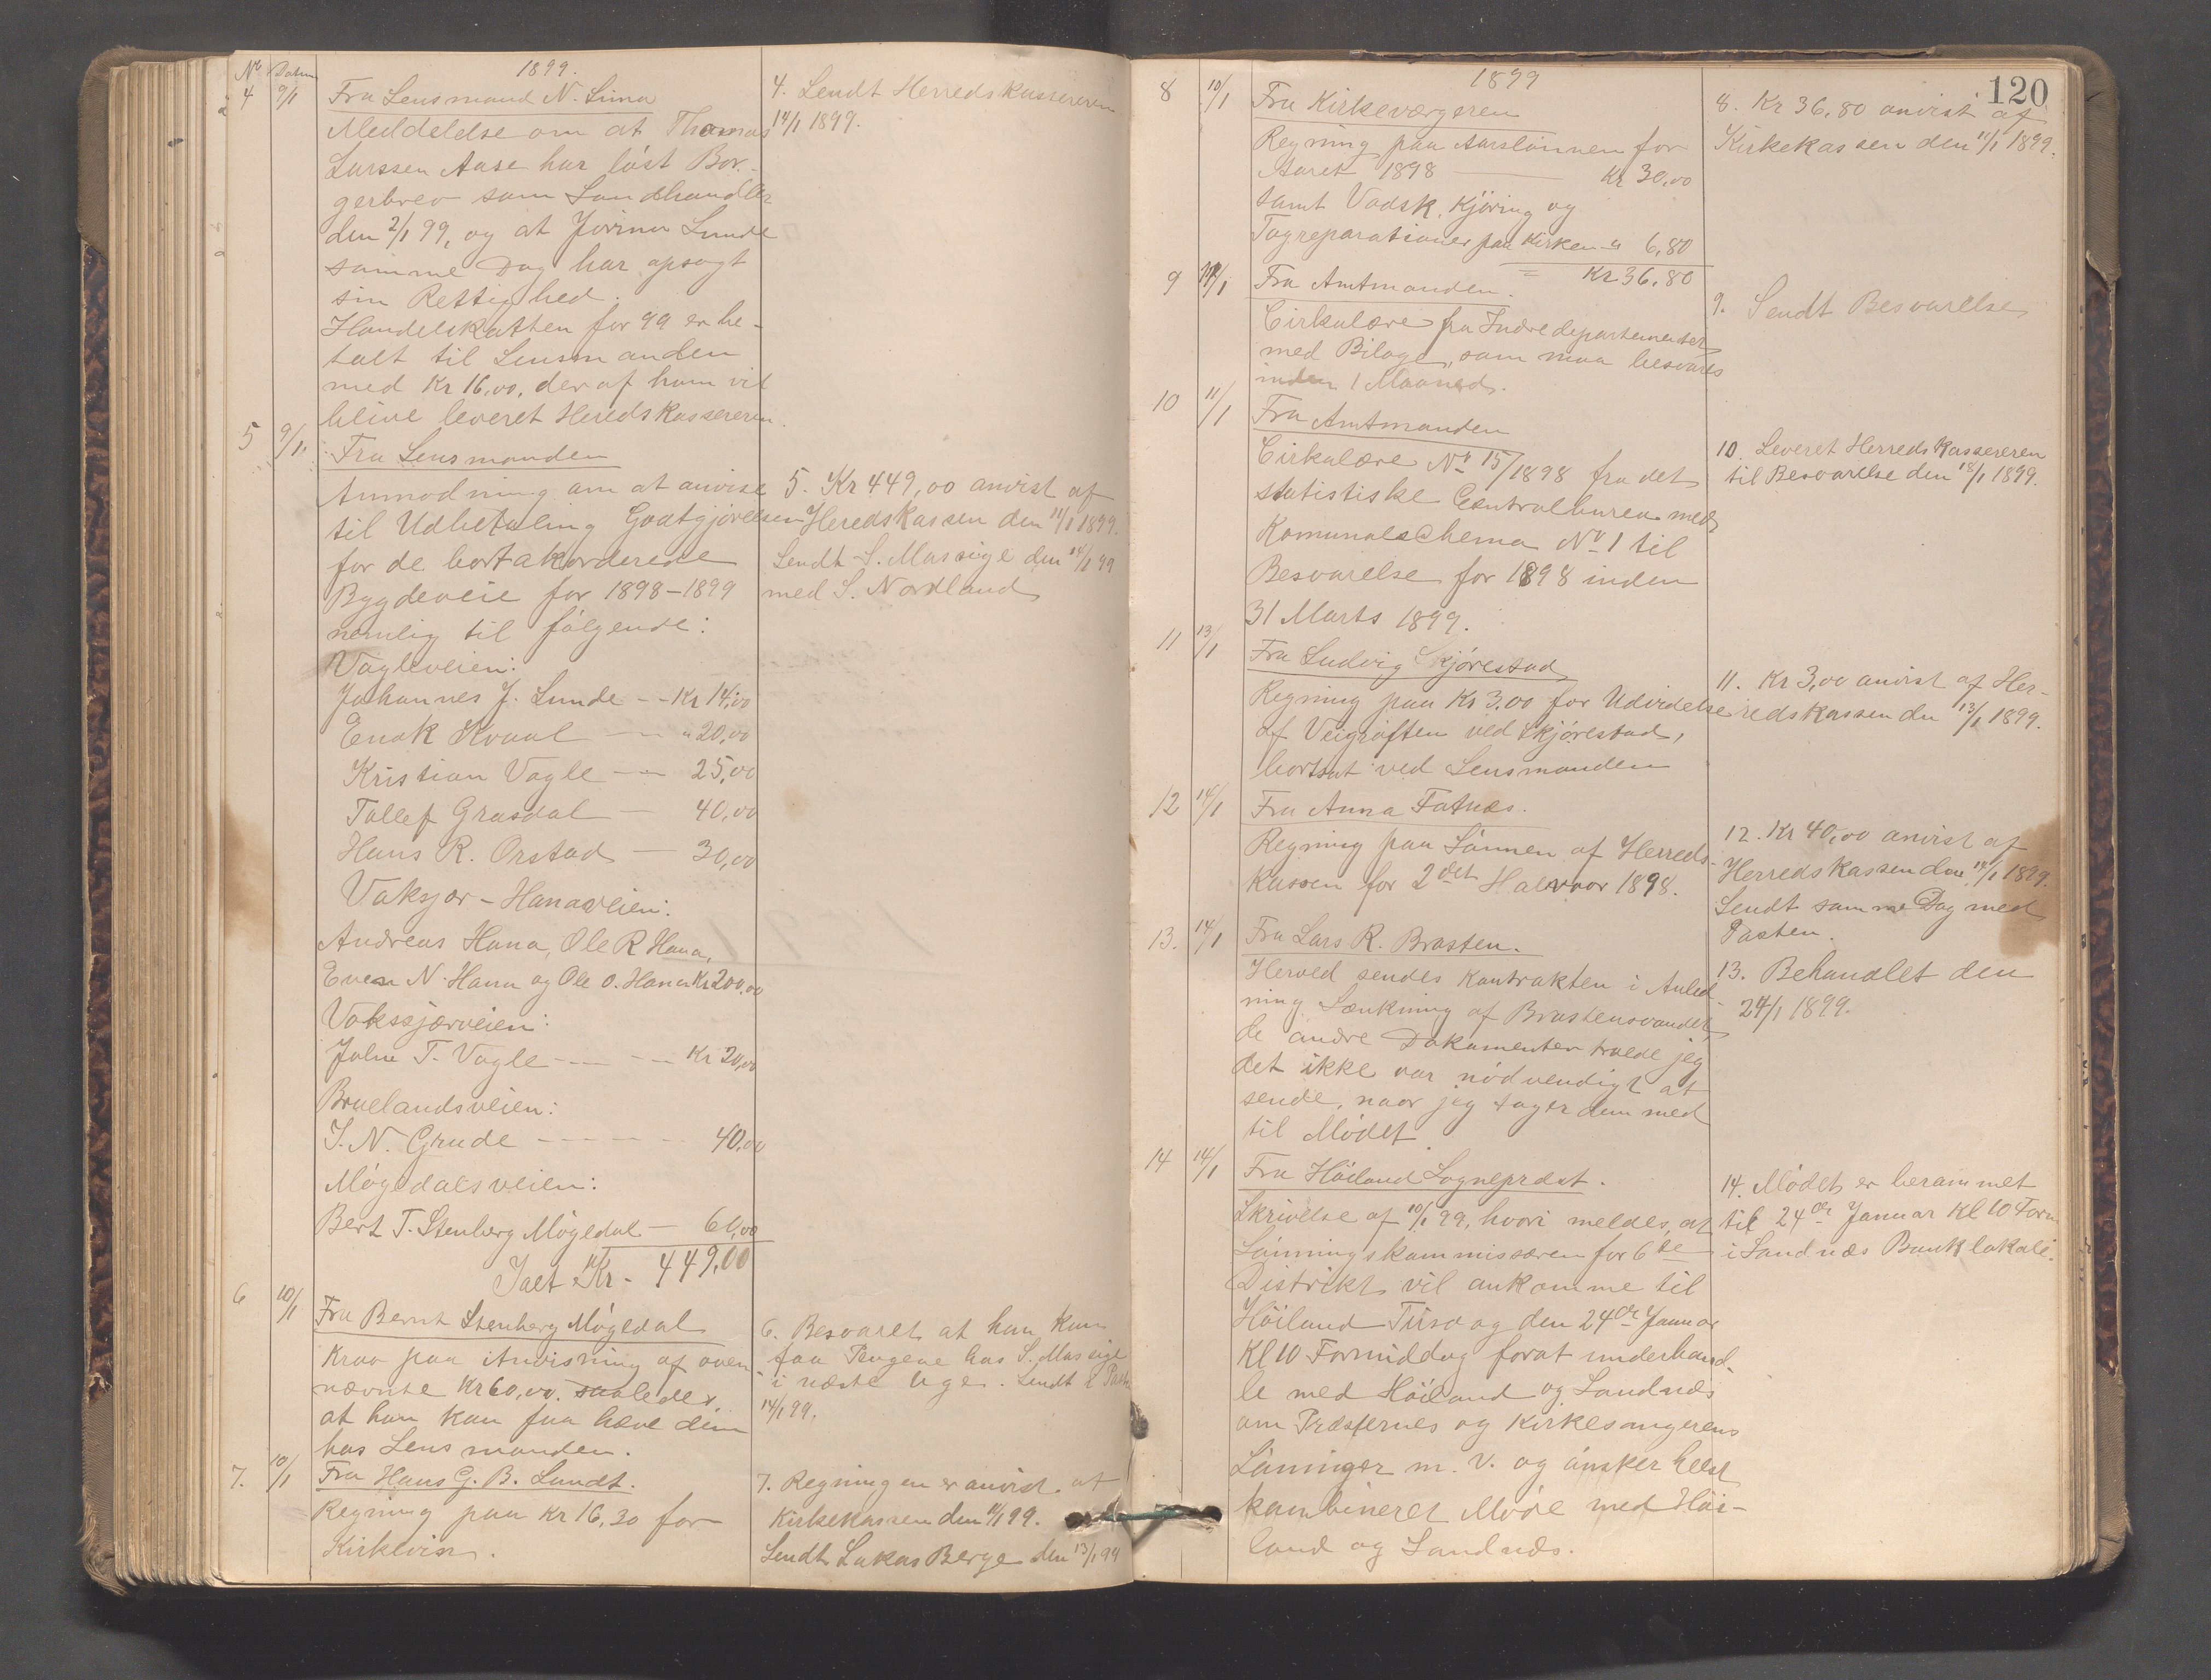 No Datum
1899.
4 9/1
Fra Lensmand N. Lima
Meddelelse om at Thomas
Larssen Aase har løst Bor-
gerbrev som Landhandler
den 2/1 99, og at Jorina Lunde
samme Dag har opsagt
sin Rettighed.
Handelskatten for 99 er be-
talt til Lensmanden
med Kr 16,00, der af ham vil
blive leveret Heredskassereren.
4. Sendt Herredskassereren
14/1 1899.
5 9/1
Fra Lensmanden
Anmodning om at anvise
til Udbetaling Godtgjørelsen
for de bortakorderede
Bygdeveie for 1898-1899
nemlig til følgende:
Vagleveien:
Johannes J. Lunde -- Kr 14,00
Enok Kvaal — " 20,00
Kristian Vagle — 25,00
Tollef Grasdal — 40,00
Hans R. Orstad — 30,00
Vaksjær-Hanaveien:
Andreas Hana, Ole R Hana,
Even N. Hana og Ole O. Hana Kr 200,00
Vaksjærveien:
John T. Vagle --- Kr 20,00
Bruelandsveien:
T. N. Grude ----- 40,00
Møgedalsveien:
Bert T. Stenberg Møgedal — 60,00
Ialt Kr - 449,00
5. Kr 449,00 anvist af
Heredskassen den 11/1 1899.
Sendt S. Massige den 14/1 99
med S. Nordland
6 10/1
Fra Bernt Stenberg Møgedal
Krav paa Anvisning af oven-
nævnte Kr 60,00. saaledes,
at han kan faa hæve dem
hos Lensmanden.
6. Besvaret at han kan
faa Pengene hos S. Massige
i næste Uge. Sendt
14/1 99.
7. 10/1
Fra Hans G. B. Sundt.
Regning paa Kr 16,30 for
Kirkevin.
7. Regningen er anvist af
Kirkekassen den 11/1 99.
Sendt Lukas Berge den 13/1 99
1899
120
8 10/1
Fra Kirkeværgeren
Regning paa Aarslønnen for
Aaret 1898 —— Kr 30,00
samt Vadsk, Kjøring og
Tagreparationer paa Kirken " 6,80
= Kr 36,80
8. Kr 36,80 anvist af
Kirkekassen den 11/1 1899.
9 11/1
Fra Amtmanden.
Cirkulære fra Indredepartementet
med Bilage, som maa besvares
inden 1 Maaned.
9. Sendt Besvarelse
10 11/1
Fra Amtmanden
Cirkulære No 15/1898 fra det
statistiske Centralbureau med
Komunalschema No 1 til
Besvarelse for 1898 inden
31 Marts 1899.
10. Leveret Herredskassereren
til Besvarelse den 18/1 1899.
11 13/1
Fra Ludvig Skjørestad
Regning paa Kr 3,00 for Udvidelse
af Veigrøften ved Skjørestad,
bortsat ved Lensmanden
11. Kr 3,00 anvist af Her-
redskassen den 13/1 1899.
12 14/1
Fra Anna Fatnæs.
Regning paa Lønnen af Herreds-
kassen for 2det Halvaar 1898.
12. Kr 40,00 anvist af
Herredskassen den 14/1 1899.
Sendt samme Dag med
Posten.
13. 14/1
Fra Lars R. Brasten.
Herved sendes Kontrakten i Anled-
ning Sænkning af Brastensvandet,
de andre Dokumenter troede jeg
det ikke var nødvendigt at
sende, naar jeg tager dem med
til Mødet.
13. Behandlet den
24/1 1899.
14 14/1
Fra Høiland Sogneprdst.
Skrivelse af 10/1 99, hvori meldes, at
Lønningskommissæren for 6te
Distrikt vil ankomme til
Høiland Tirsdag den 24de Januar
Kl 10 Formiddag forat underhand-
le med Høiland og Sandnæs
om Præsternes og Kirkesangerens
Lønninger m. v. og ønsker helst
kombineret Møde med Høi-
land og Sandnæs.
14. Mødet er berammet
til 24de Januar Kl 10 Form
i Sandnæs Banklokale.